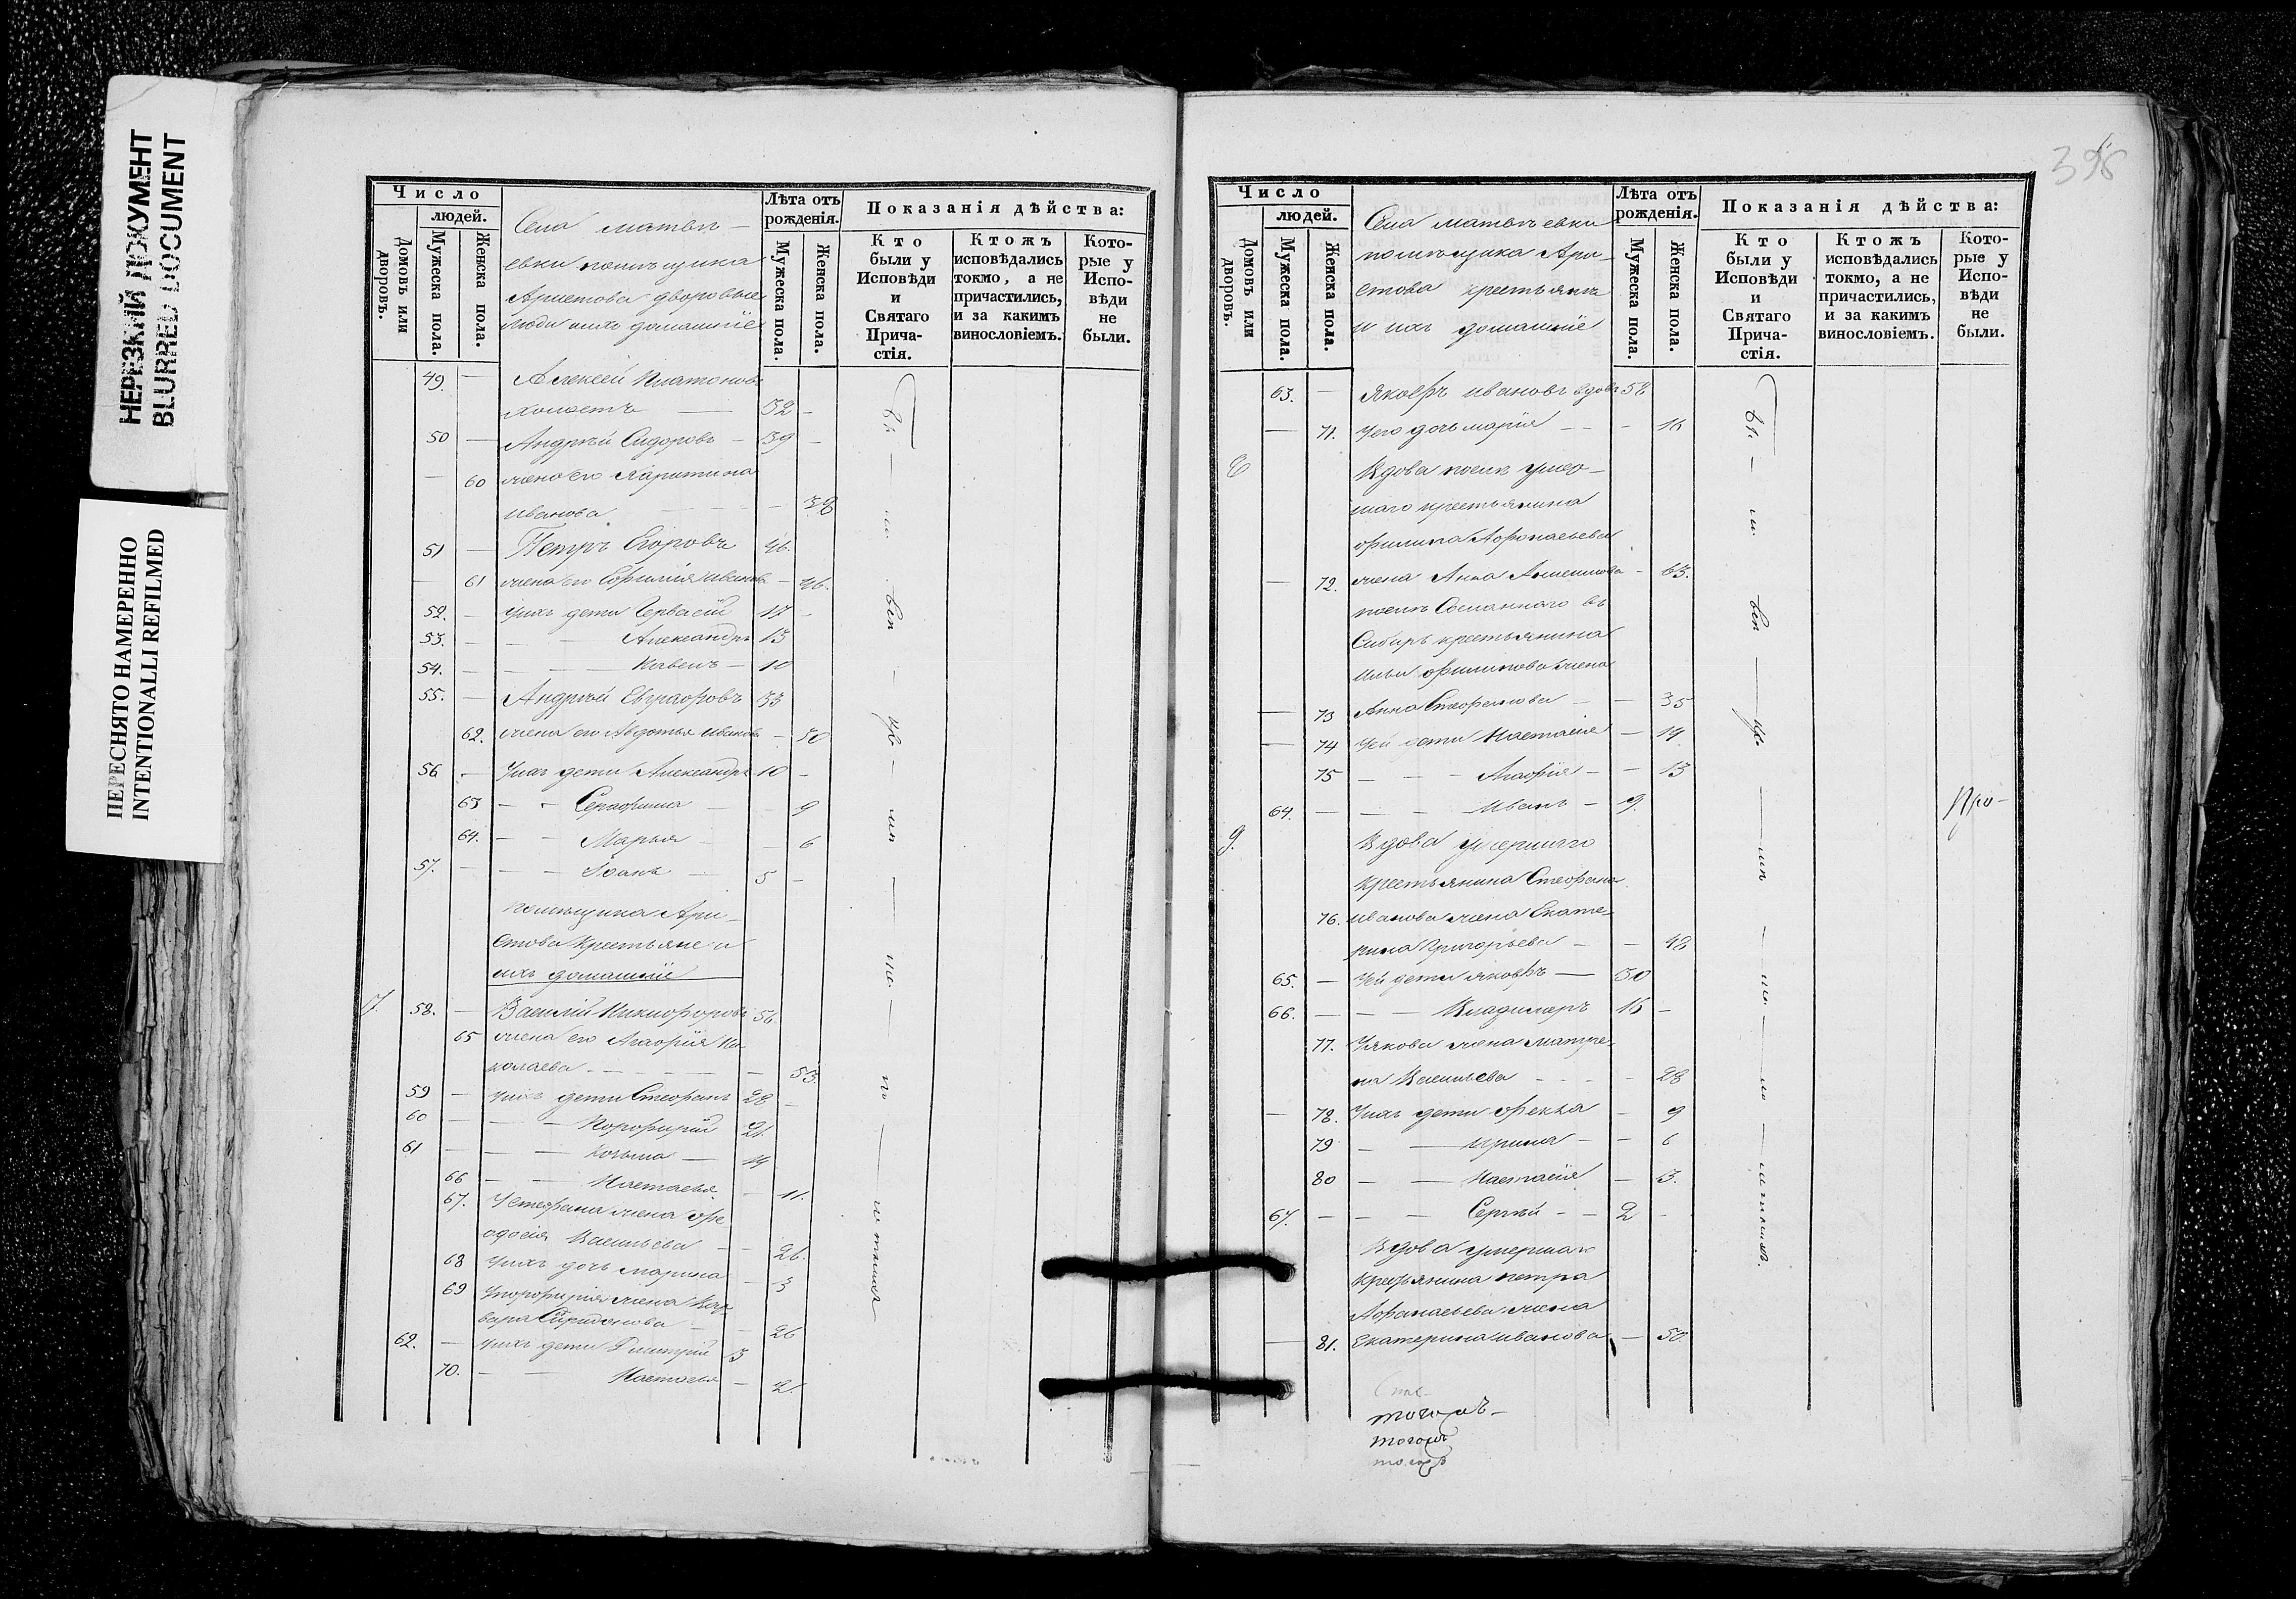 НЕРЕЗКИЙ ДОКУМЕНТ
BLURRED DOCUMENT
ПЕРЕСНЯТО НАМЕРЕННО
INTENTIONALLI REFILMED
Число
людей.
Домовъ или дворовъ.
Мужеска пола.
Женска пола.
Села матвѣ-
евки помѣщика
Аристова дворовые
люди ихъ домашніе
Лѣта отъ рожденія.
Мужеска пола.
Женска пола.
Показанія дѣйства:
Кто были у Исповѣди и Святаго Причастія.
Ктожъ исповѣдались токмо, а не причастились, и за какимъ винословіемъ.
Которые у Исповѣди не были.
49. — Алексей Платоновъ
холостъ — 32 —
50 — Андрѣй Сидоровъ — 39 —
— 60 жена его Харитина
Иванова — 38
51 — Петръ Егоровъ 46.
— 61 жена его Ефимія Иванова — 46.
52. — У ихъ дети Герваѣій 17 —
53. — Александръ 13
54. — Павелъ — 10
55. — Андрѣй Евграфовъ 33
62. жена его Авдотья Иванова — 30
56 — У ихъ дети Александръ 10 —
63 — Серафима 9
64. — Марья 6
57. — Іоанъ 5 —
помѣщика Ари-
стова крестьяне и
ихъ домашніе
7. 58. — Василій Никифоровъ 56.
65 жена его Агафія Ни-
колаева — 53.
59 — У ихъ дети Стефанъ 28 —
60 — Порфирій 21.
61 — Козьма — 19
66 — Настасья — 11.
67. У Стефана жена Фе-
одосія Васильева — 26.
68 У ихъ дочь Марина — 3
69 У Порфирія жена Вар-
вара Спиридонова — 26
62. — У ихъ дети Дмитрій 3
70. — Настасья — 2.
398
Число
людей.
Домовъ или дворовъ.
Мужеска пола.
Женска пола.
Села матвѣевки
помѣщика Ари-
стова крестьяне
и ихъ домашніе
Лѣта отъ рожденія.
Мужеска пола.
Женска пола.
Показанія дѣйства:
Кто были у Исповѣди и Святаго Причастія.
Ктожъ исповѣдались токмо, а не причастились, и за какимъ винословіемъ.
Которые у Исповѣди не были.
63. — Яковъ Ивановъ вдовъ 58
— 71. У его дочь Марія — 16
Вдова послѣ умер-
шаго крестьянина
Филипа Афонасьева
— 72. жена Анна — 63.
послѣ Сосланнаго въ
Сибирь крестьянина
Ильи Филипова жена
— 73 Анна Стефанова — 35
— 74 У ей дети Настасія — 19
75 — Агафія — 13
64. — Иванъ — 9.
9. Вдова умершаго
крестьянина Стефана
76. Иванова жена Екате-
рина Григорьева — 48
65. — У ей дети Яковъ — 30
66. — Владимеръ 16 —
77. У Якова жена Матре-
на Васильева — 28
— 78. У ихъ дети Фекла — 9
79 — Ирина — 6
80 — Настасія — 3.
67. — Сергѣй — 2 —
Вдова умершаго
крестьянина петра
Афанасьева жена
— 81. Екатерина Иванова — 50.